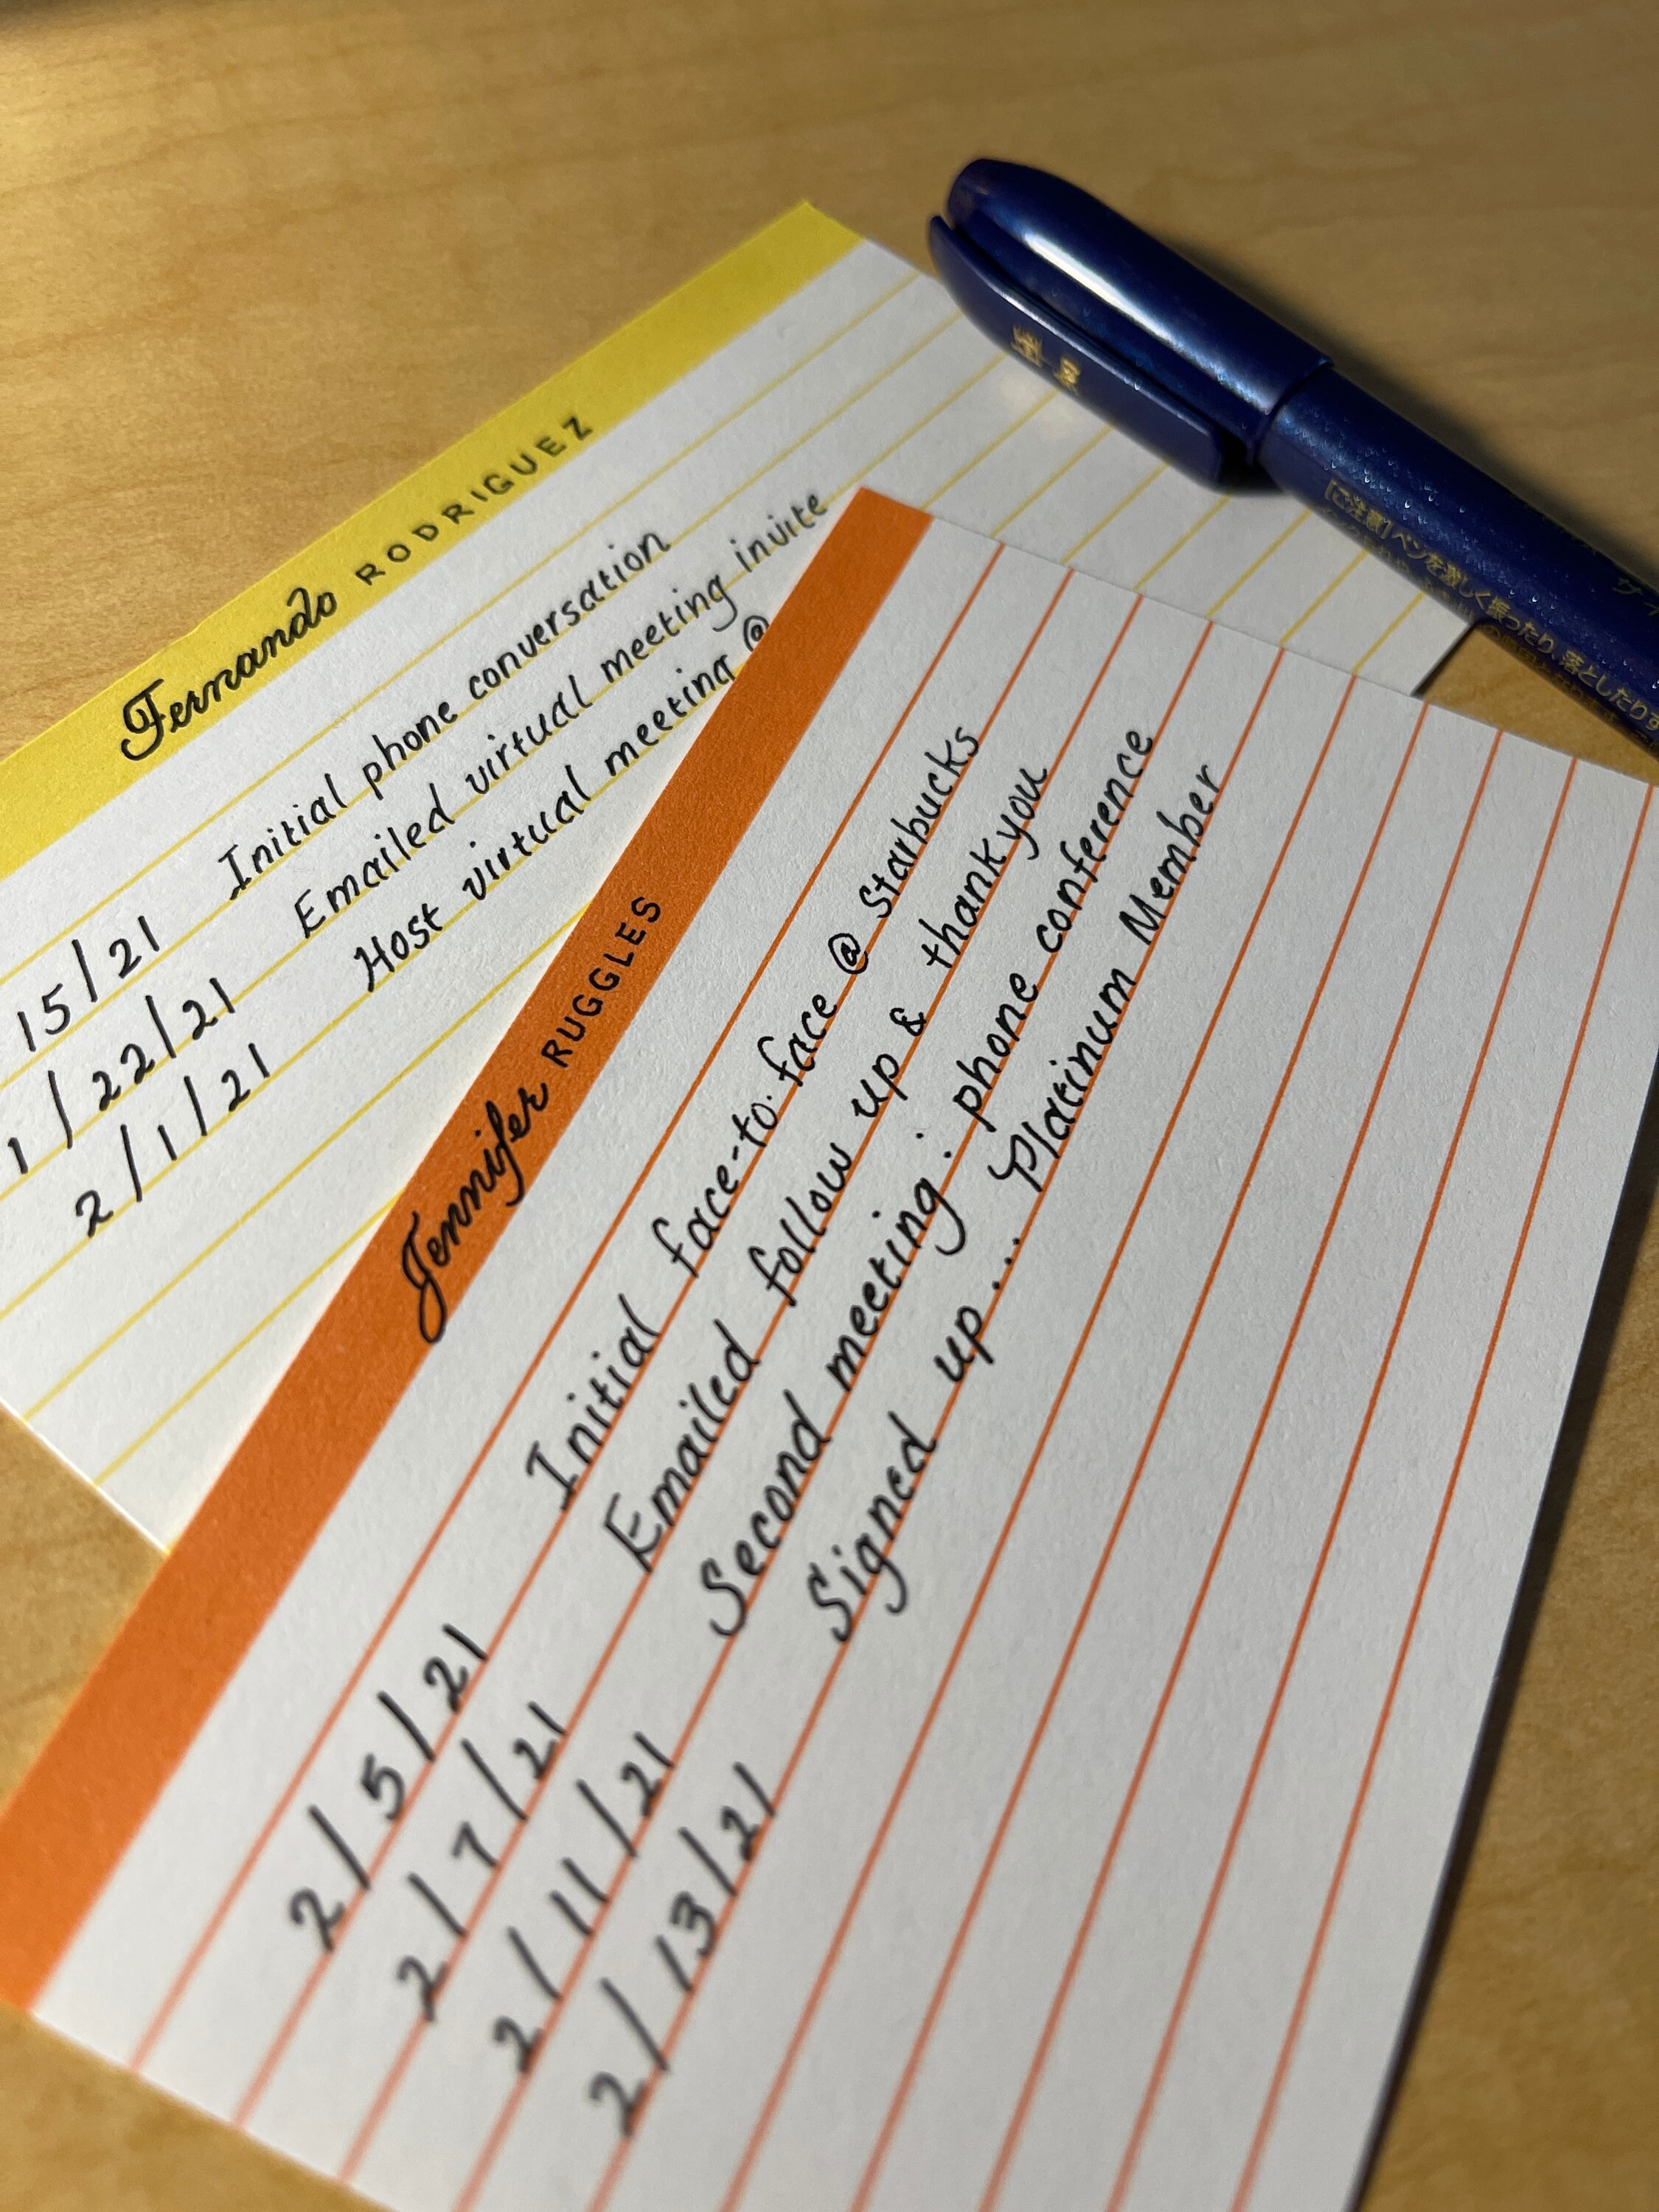 Fernando RODRIGUEZ
15/21 Initial phone conversation
1/22/21 Emailed virtual meeting invite
2/1/21 Host virtual meeting @
Jennifer RUGGLES
2/5/21 Initial face-to-face @ Starbucks
2/7/21 Emailed follow up & thank you
2/11/21 Second meeting: phone conference
2/13/21 Signed up... Platinum Member
[ご注意]ペンを激しく振ったり、落としたりす